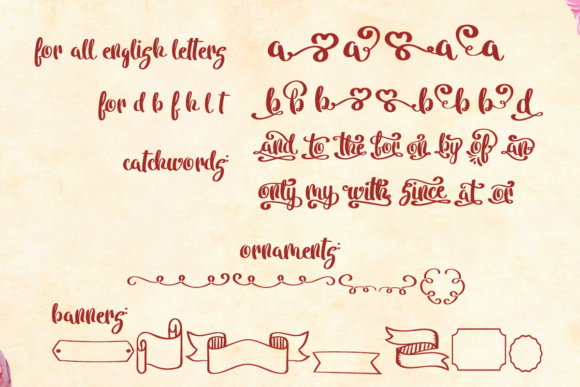 for all english letters
a a a a
for d b f k l t
b b b b b b d
catchwords:
and to the for on by of an
only my with since at or
ornaments:
banners: